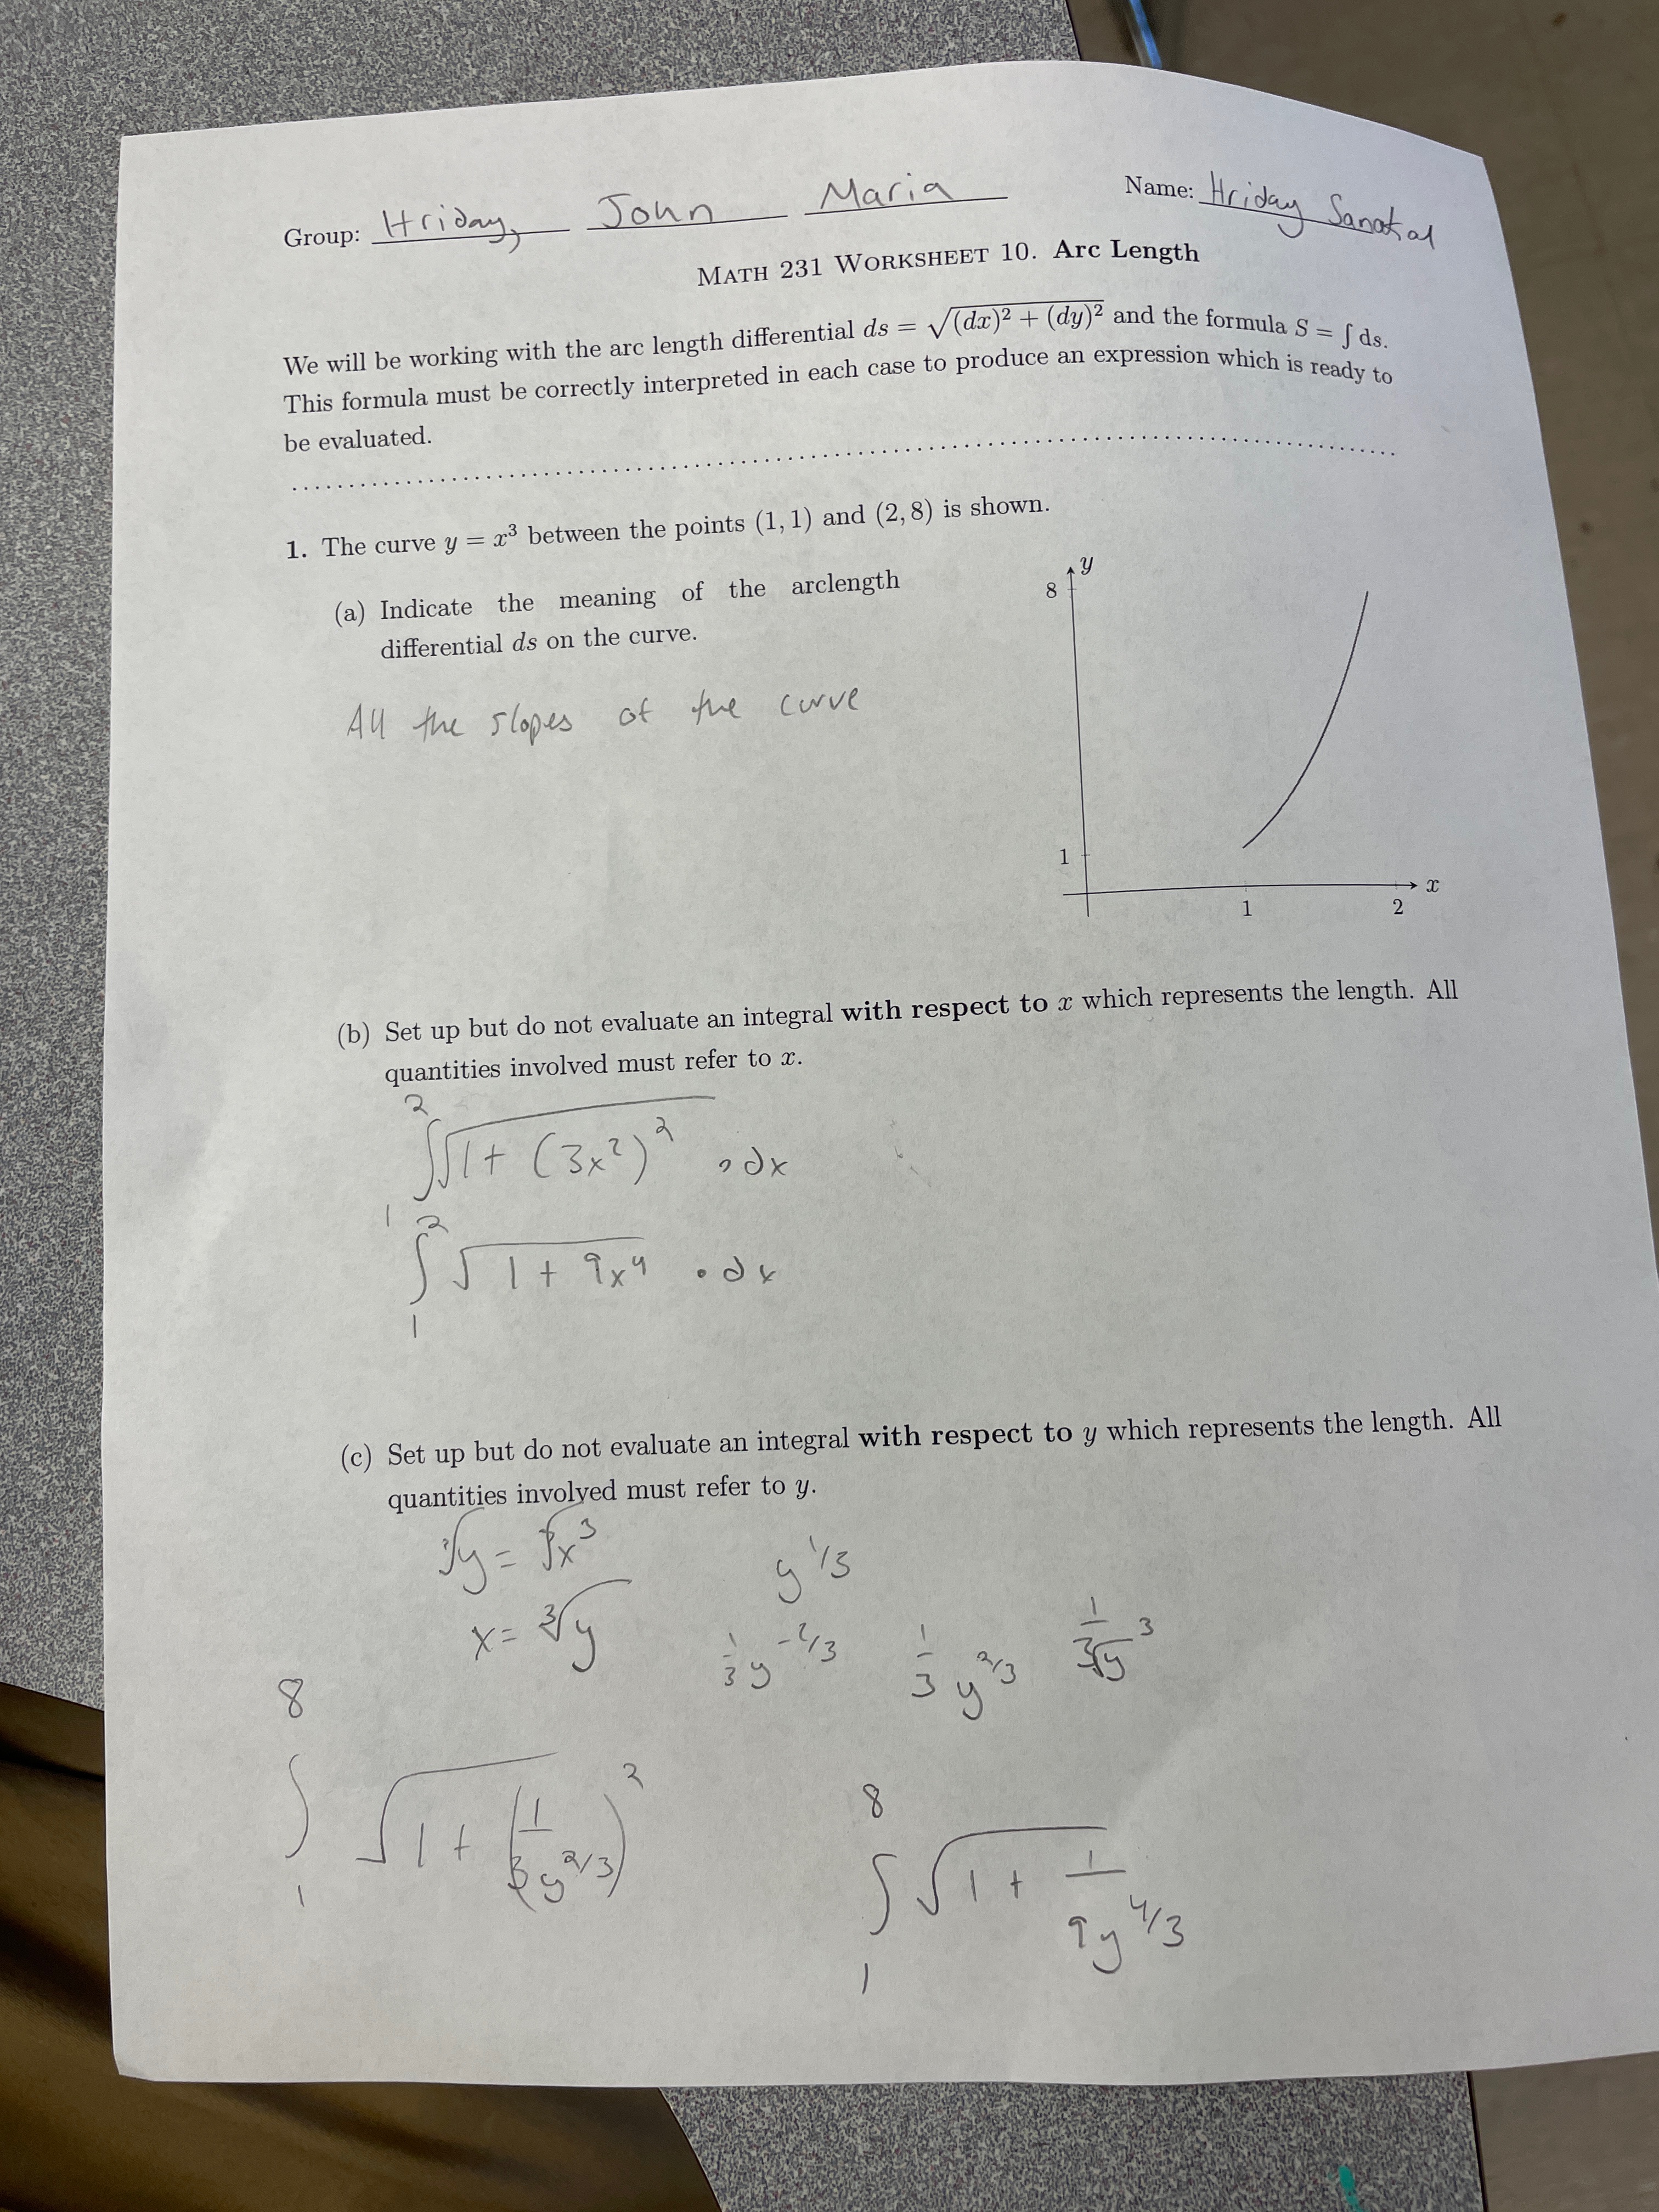 Group: Hriday, John Maria Name: Hriday Sanatial
MATH 231 WORKSHEET 10. Arc Length
We will be working with the arc length differential ds = √((dx)² + (dy)²) and the formula S = ∫ ds.
This formula must be correctly interpreted in each case to produce an expression which is ready to
be evaluated.
1. The curve y = x³ between the points (1, 1) and (2, 8) is shown.
(a) Indicate the meaning of the arclength
differential ds on the curve.
All the slopes of the curve
y
8
1
x
1 2
(b) Set up but do not evaluate an integral with respect to x which represents the length. All
quantities involved must refer to x.
∫₁² √(1 + (3x²)²) · dx
∫₁² √(1 + 9x⁴) · dx
(c) Set up but do not evaluate an integral with respect to y which represents the length. All
quantities involved must refer to y.
∛y = ∛x³ y^1/3
x = ∛y 1/3 y^-2/3 1/3 y^2/3 1/∛y ³
∫₁⁸ √(1 + (1/(3y^2/3))²) ∫₁⁸ √(1 + 1/(9y^4/3))